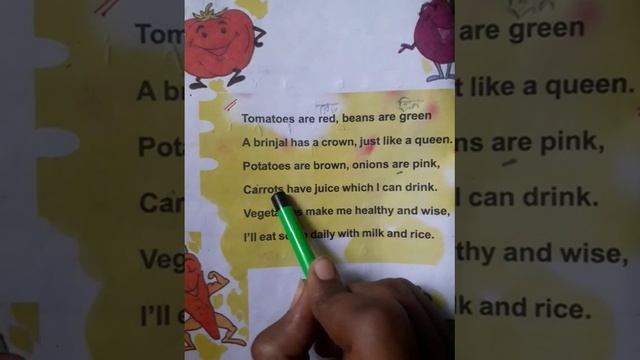 Tomatoes are red, beans are green
A brinjal has a crown, just like a queen.
Potatoes are brown, onions are pink,
Carrots have juice which I can drink.
Vegetables make me healthy and wise,
I'll eat some daily with milk and rice.